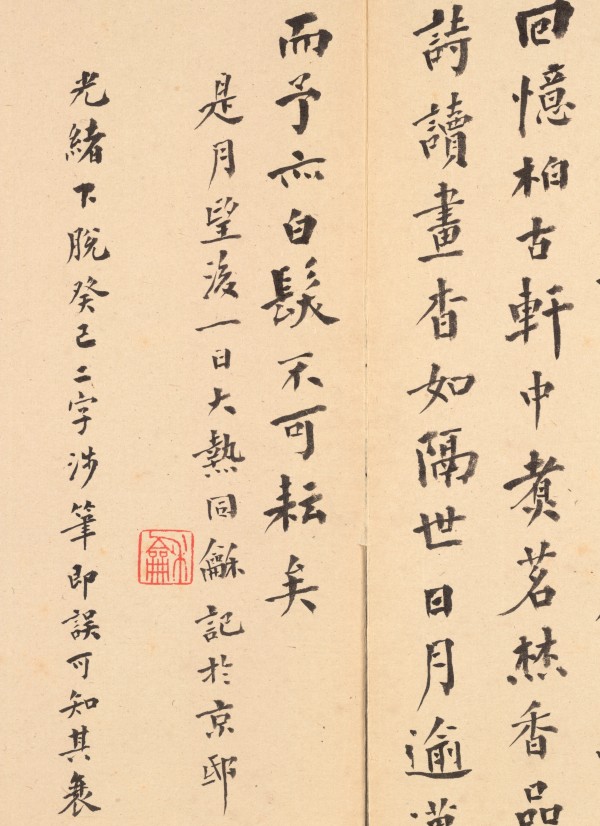 回憶柏古軒中煑茗焚香品
詩讀畫杳如隔世日月逾
而予亦白髮不可耘矣
是月望後一日大熱同龢記於京邸
龢
光緒下脫癸巳二字涉筆即誤可知其衰